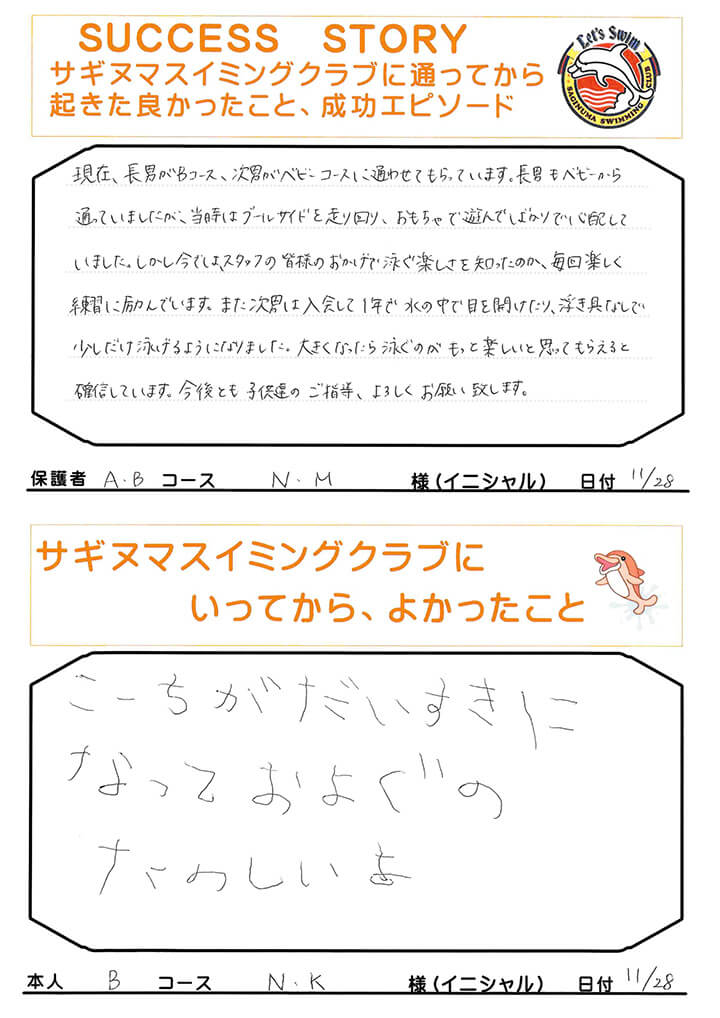 SUCCESS STORY
サギヌマスイミングクラブに通ってから
起きた良かったこと、成功エピソード
Let's Swim
SAGINUMA SWIMMING CLUB
現在、長男がBコース、次男がベビーコースに通わせてもらっています。長男もベビーから
通っていましたが、当時はプールサイドを走り回り、おもちゃで遊んでばかりで心配して
いました。しかし今では、スタッフの皆様のおかげで泳ぐ楽しさを知ったのか、毎回楽しく
練習に励んでいます。また次男は入会して1年で水の中で目を開けたり、浮き具なしで
少しだけ泳げるようになりました。大きくなったら泳ぐのがもっと楽しいと思ってもらえると
確信しています。今後とも子供達のご指導、よろしくお願い致します。
保護者 A.B コース N.M 様(イニシャル) 日付 11/28
サギヌマスイミングクラブに
いってから、よかったこと
こーちがだいすきに
なっておよぐの
たのしいよ
本人 B コース N.K 様(イニシャル) 日付 11/28